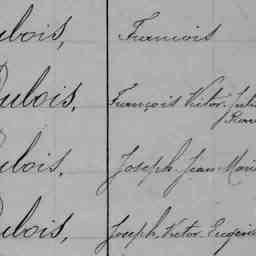 ubois, Francois
Dubois, François Victor Juli
Dubois, Joseph Jean Mari
Dubois, Joseph Victor Eugène